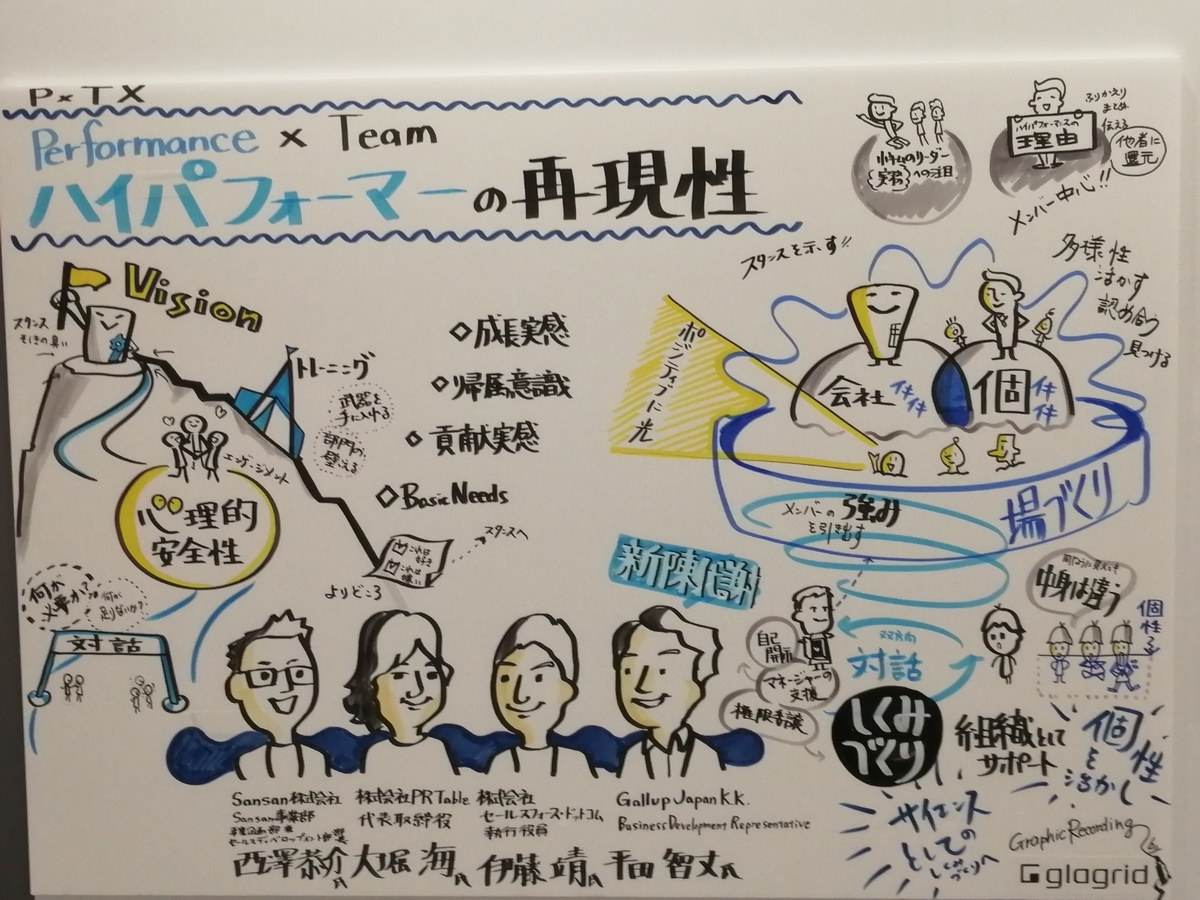 P×TX
Performance × Team
ハイパフォーマーの再現性
Vision
スタンス
トレーニング
武器を
手に入れる
部門の
壁こえる
エンゲージメント
心理的
安全性
何が
大事か?
何が
足りないか?
対話
◇成長実感
◇帰属意識
◇貢献実感
◇Basic Needs
これは
好き
これは
嫌い
スタンスへ
よりどころ
実務
への注目
ハイパフォーマンスの
理由
ふりかえり
まとめ
伝える
他者に
還元
メンバー中心!!
スタンスを示す!!
多様性
活かす
認め合う
見つける
ポジティブに光
会社
イキイキ
個
イキイキ
場づくり
メンバーの強み
を引き出す
新陳代謝
中身は違う
個性
自己
開示
マネージャーの
支援
権限委譲
双方向
対話
しくみ
づくり
組織として
サポート
個性
を
活かし
サイエンス
としての
しくみ
づくりへ
Sansan株式会社
Sansan事業部
西澤恭介氏
株式会社PR Table
代表取締役
大堀 海氏
株式会社
セールスフォース・ドットコム
執行役員
伊藤 靖氏
Gallup Japan K.K.
Business Development Representative
平田 智丈氏
Graphic Recording
glagrid